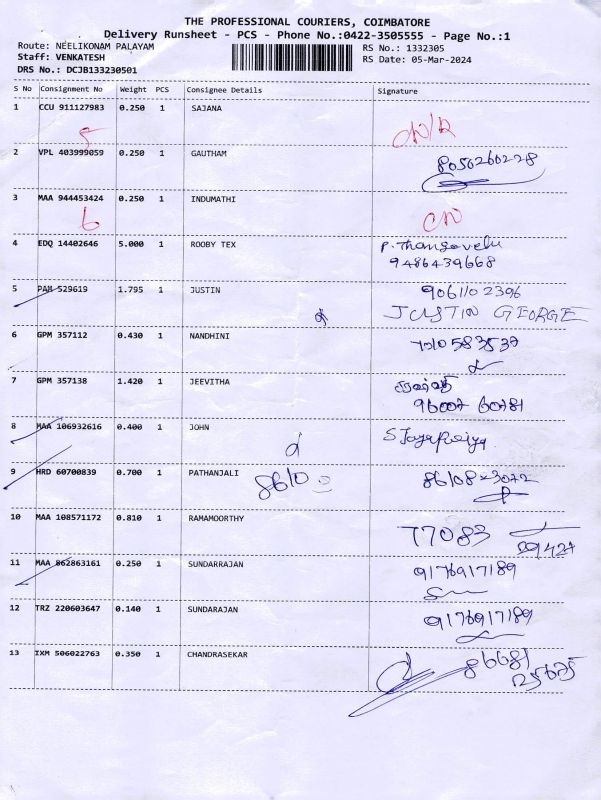 THE PROFESSIONAL COURIERS, COIMBATORE
Delivery Runsheet - PCS - Phone No.:0422-3505555 - Page No.:1
Route: NEELIKONAM PALAYAM RS No.: 1332305
Staff: VENKATESH RS Date: 05-Mar-2024
DRS No.: DCJB133230501
S No Consignment No Weight PCS Consignee Details Signature
1 CCU 911127983 0.250 1 SAJANA
2 VPL 403999059 0.250 1 GAUTHAM 8050260228
3 MAA 944453424 0.250 1 INDUMATHI
6
4 EDQ 14402646 5.000 1 ROOBY TEX P. Thangavelu
9486439668
5 PAM 529619 1.795 1 JUSTIN 9061102396
JUSTIN GEORGE
6 GPM 357112 0.430 1 NANDHINI 7010583537
7 GPM 357138 1.420 1 JEEVITHA
96007 60781
8 MAA 106932616 0.400 1 JOHN
9 HRD 60700839 0.700 1 PATHANJALI 8610823072
8610
10 MAA 108571172 0.810 1 RAMAMOORTHY 77083
59427
11 MAA 862863161 0.250 1 SUNDARRAJAN 9176917189
12 TRZ 220603647 0.140 1 SUNDARAJAN 9176917189
13 IXM 506022763 0.350 1 CHANDRASEKAR 86681